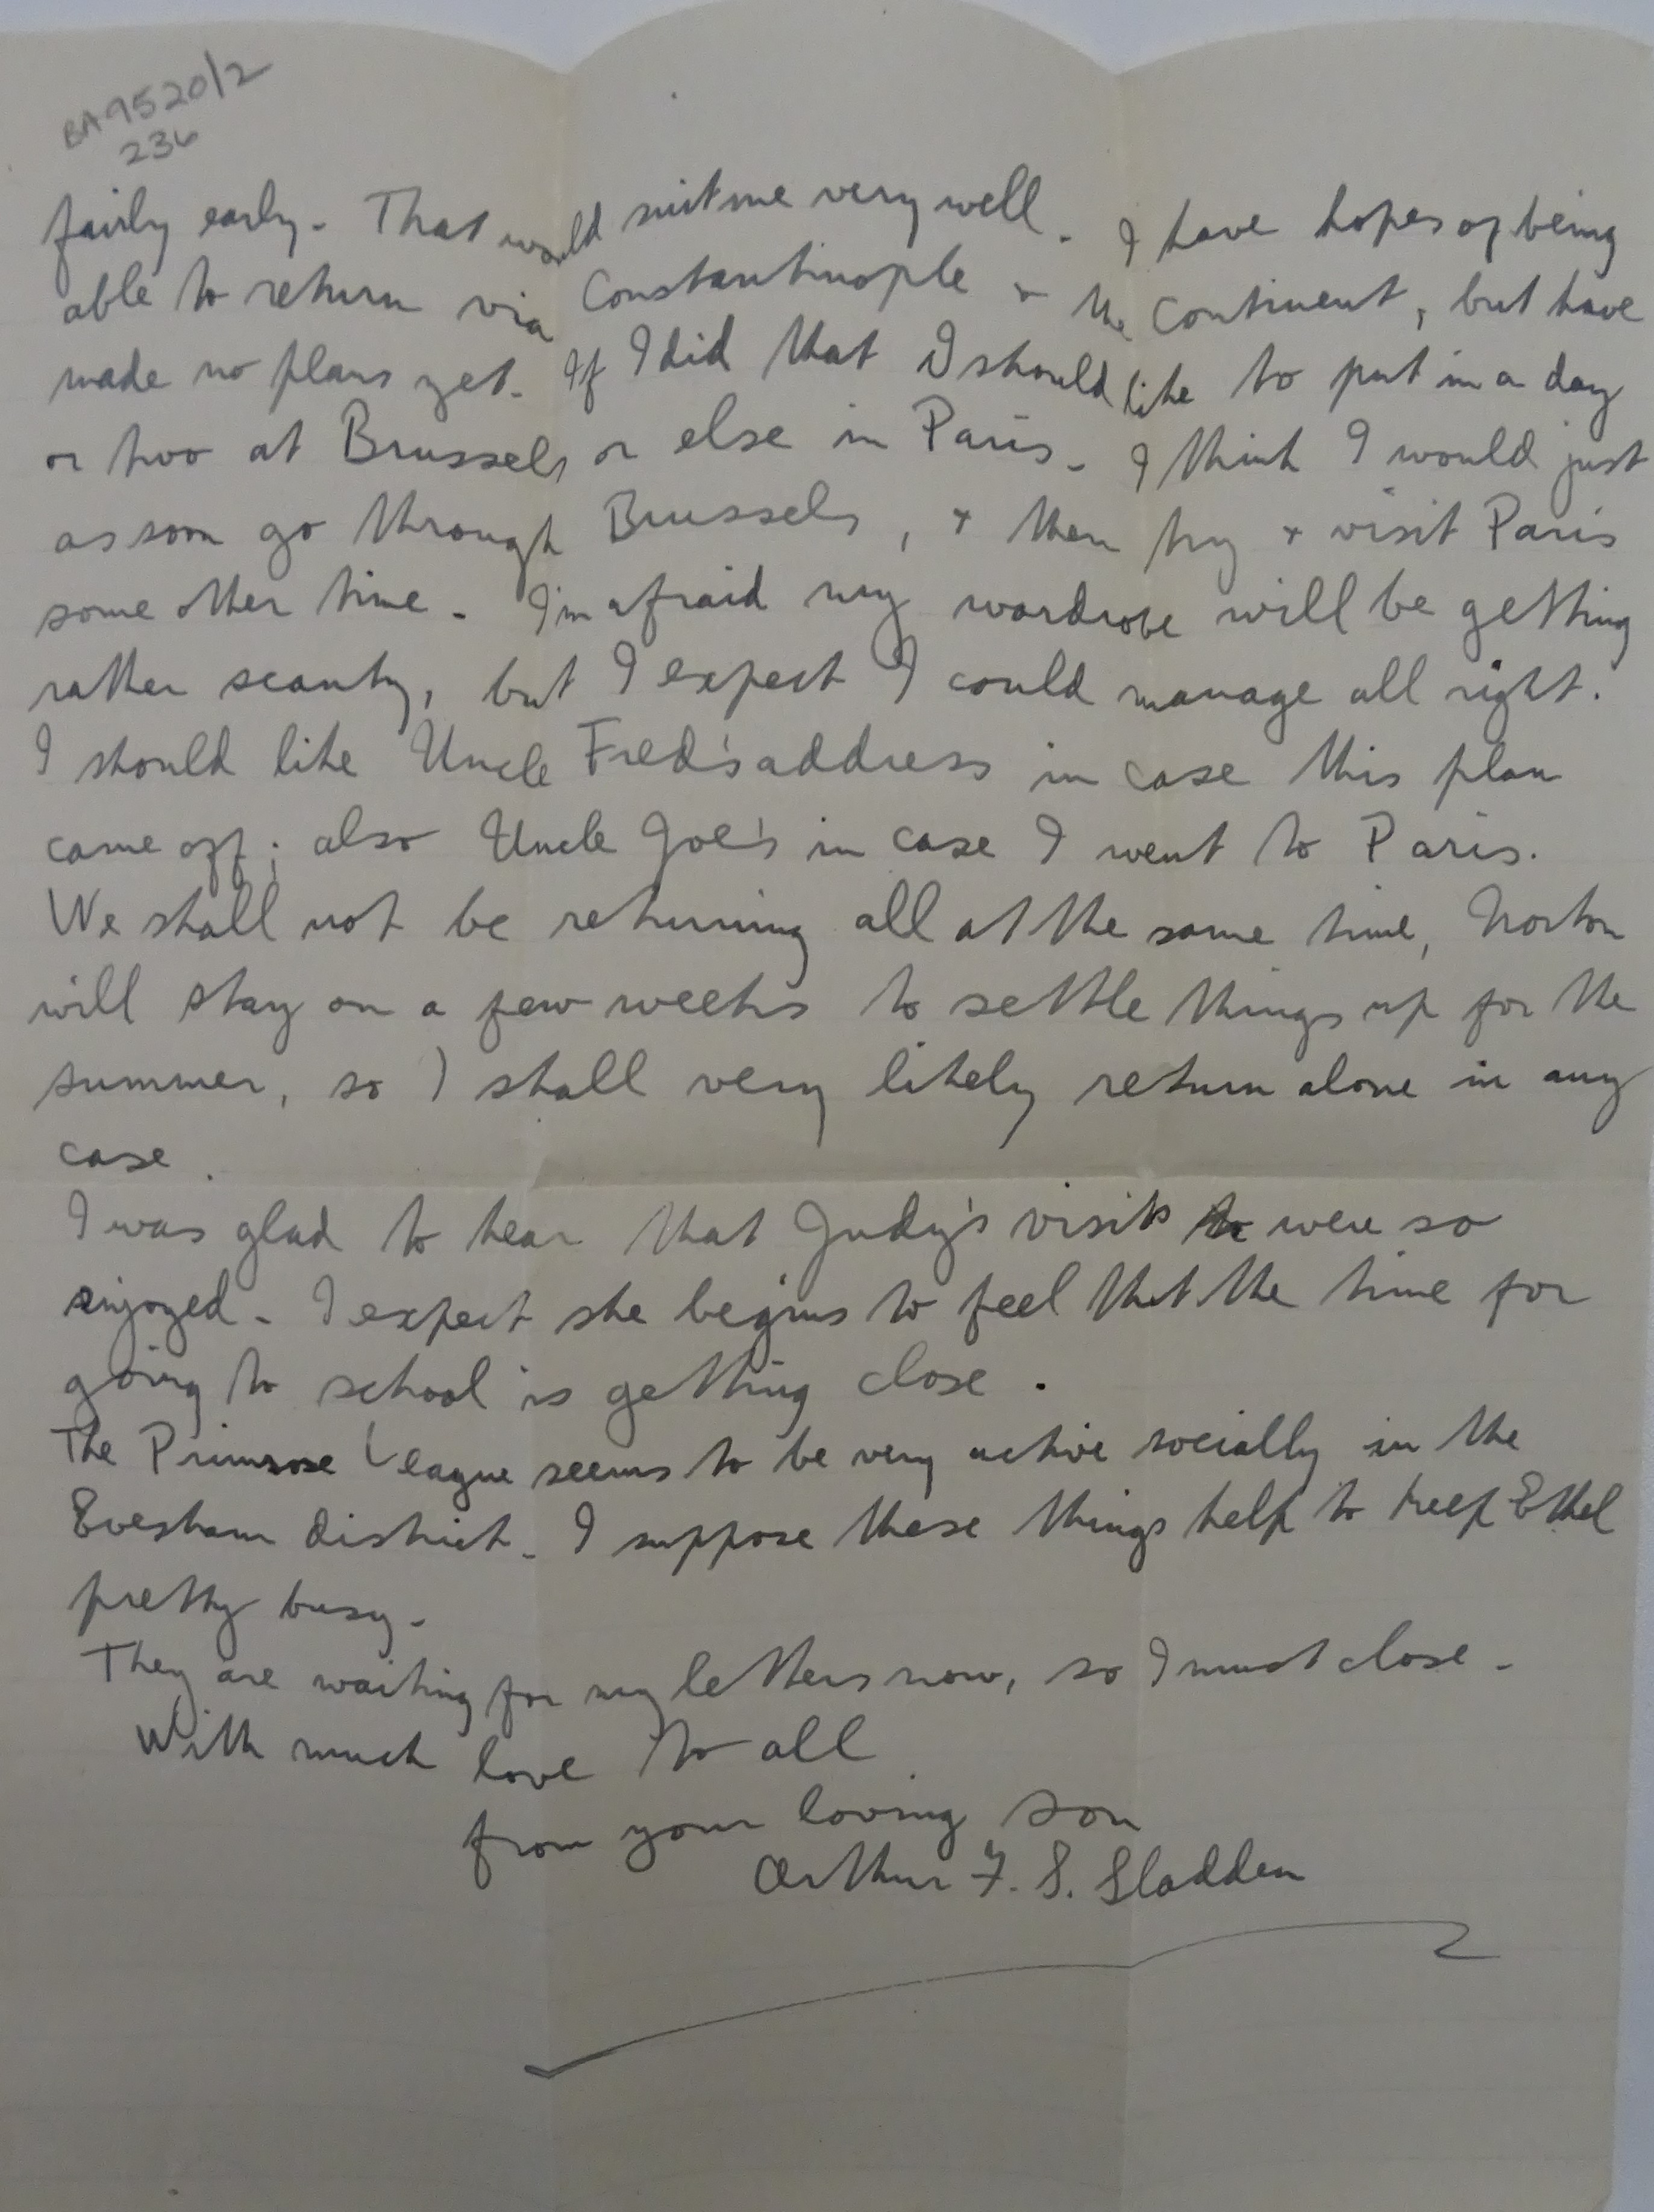 BA9520/2
236
fairly early. That would suit me very well. I have hopes of being
able to return via Constantinople + the Continent, but have
made no plans yet. If I did that I should like to put in a day
or two at Brussels or else in Paris. I think I would just
as soon go through Brussels, + then try + visit Paris
some other time. I'm afraid my wardrobe will be getting
rather scanty, but I expect I could manage all right.
I should like Uncle Fred's address in case this plan
came off; also Uncle Joe's in case I went to Paris.
We shall not be returning all at the same time, Norton
will stay on a few weeks to settle things up for the
summer, so I shall very likely return alone in any
case.
I was glad to hear that Judy's visits were so
enjoyed. I expect she begins to feel that the time for
going to school is getting close.
The Primrose League seems to be very active socially in the
Evesham district. I suppose these things help to keep Ethel
pretty busy.
They are waiting for my letters now, so I must close.
With much love to all
from your loving son
Arthur F. S. Sladden